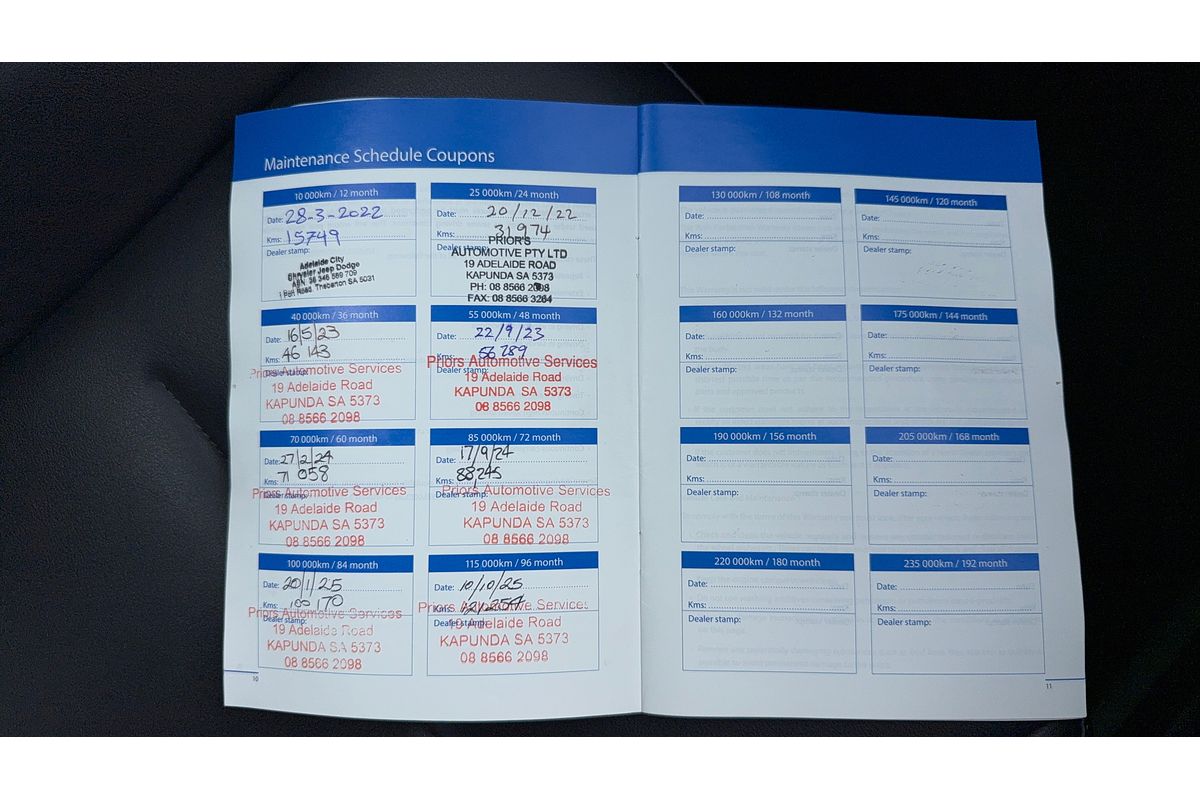 Maintenance Schedule Coupons
10 000km / 12 month
Date: 28-3-2022
Kms: 15749
Dealer stamp:
Adelaide City
Chrysler Jeep Dodge
ABN: 36 346 569 709
Port Road, Thebarton SA 5031
25 000km /24 month
Date: 20/12/22
Kms: 31974
Dealer
PRIOR'S
AUTOMOTIVE PTY LTD
19 ADELAIDE ROAD
KAPUNDA SA 5373
PH: 08 8566 2098
FAX: 08 8566 3264
40 000km / 36 month
Date: 16/5/23
Kms: 46 143
Dealer stamp:
Priors Automotive Services
19 Adelaide Road
KAPUNDA SA 5373
08 8566 2098
55 000km / 48 month
Date: 22/9/23
Kms: 56289
Dealer stamp:
Priors Automotive Services
19 Adelaide Road
KAPUNDA SA 5373
08 8566 2098
70 000km / 60 month
Date: 27/2/24
Kms: 71 058
Dealer stamp:
Priors Automotive Services
19 Adelaide Road
KAPUNDA SA 5373
08 8566 2098
85 000km / 72 month
Date: 17/9/24
Kms: 88245
Dealer stamp:
Priors Automotive Services
19 Adelaide Road
KAPUNDA SA 5373
08 8566 2098
100 000km / 84 month
Date: 20/1/25
Kms: 100 170
Dealer stamp:
Priors Automotive Services
19 Adelaide Road
KAPUNDA SA 5373
08 8566 2098
115 000km / 96 month
Date: 10/10/25
Kms:
Dealer stamp:
Priors Automotive Services
19 Adelaide Road
KAPUNDA SA 5373
08 8566 2098
10
130 000km / 108 month
Date:
Kms:
Dealer stamp:
145 000km / 120 month
Date:
Kms:
Dealer stamp:
160 000km / 132 month
Date:
Kms:
Dealer stamp:
175 000km / 144 month
Date:
Kms:
Dealer stamp:
190 000km / 156 month
Date:
Kms:
Dealer stamp:
205 000km / 168 month
Date:
Kms:
Dealer stamp:
220 000km / 180 month
Date:
Kms:
Dealer stamp:
235 000km / 192 month
Date:
Kms:
Dealer stamp:
11